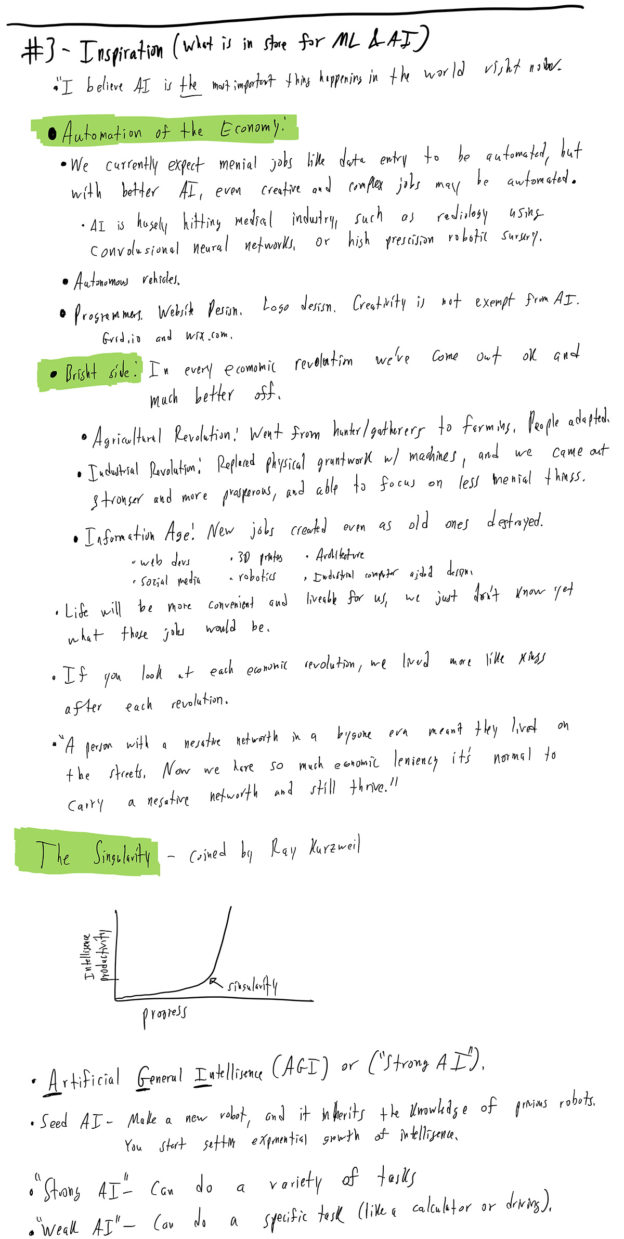 #3 - Inspiration (What is in store for ML & AI)
• "I believe AI is the most important thing happening in the world right now.
• Automation of the Economy:
• We currently expect menial jobs like data entry to be automated, but
with better AI, even creative and complex jobs may be automated.
• AI is hugely hitting medial industry, such as radiology using
convolusional neural networks, or high prescision robotic surgery.
• Autonomous vehicles.
• Programmers. Website Design. Logo design. Creativity is not exempt from AI.
Grid.io and wix.com.
• Bright side: In every economic revolution we've come out ok and
much better off.
• Agricultural Revolution: Went from hunter/gatherers to farming. People adapted.
• Industrial Revolution: Replaced physical gruntwork w/ machines, and we came out
stronger and more prosperous, and able to focus on less menial things.
• Information Age: New jobs created even as old ones destroyed.
• web devs • 3D printers • Architecture
• social media • robotics • Industrial computer aided design.
• Life will be more convenient and liveable for us, we just don't know yet
what those jobs would be.
• If you look at each economic revolution, we lived more like kings
after each revolution.
• "A person with a negative networth in a bygone era meant they lived on
the streets. Now we have so much economic leniency it's normal to
carry a negative networth and still thrive."
The Singularity - coined by Ray Kurzweil
Intelligence
productivity
singularity
progress
• Artificial General Intelligence (AGI) or ("Strong AI").
• Seed AI - Make a new robot, and it inherits the knowledge of previous robots.
You start getting exponential growth of intelligence.
• "Strong AI" - Can do a variety of tasks
• "Weak AI" - Can do a specific task (like a calculator or driving).